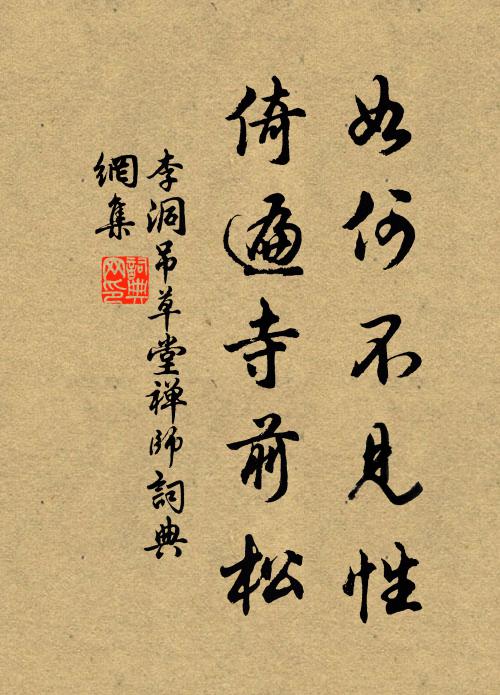 如何不見性
倚遍寺前松
李洞吊草堂禅師詞典
網集
詞典网印